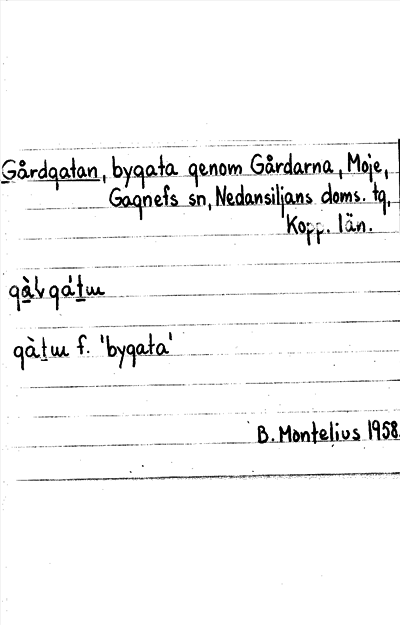 Gårdgatan, bygata genom Gårdarna, Moje,
Gagnefs sn, Nedansiljans doms. tg,
Kopp. län.
f. 'bygata'
B. Montelius 1958.